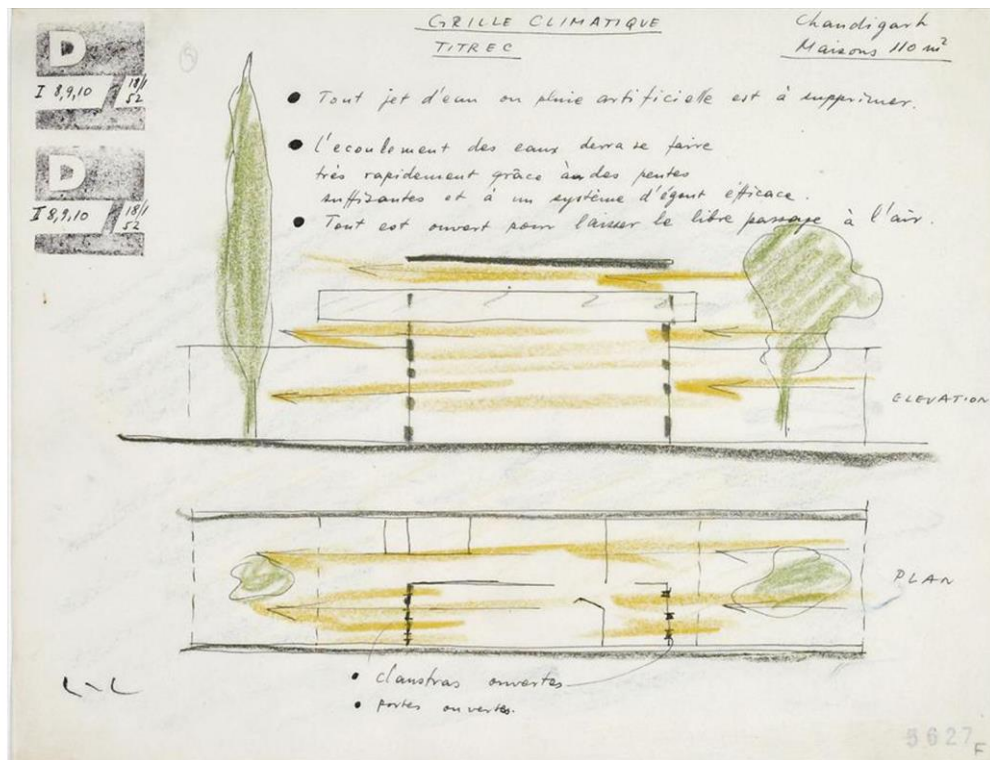 GRILLE CLIMATIQUE
TITRE C
Chandigarh
Maisons 110 m²
D
I 8,9,10 18/1
52
D
I 8,9,10 18/1
52
• Tout jet d'eau ou pluie artificielle est à supprimer.
• L'ecoulement des eaux devra se faire
très rapidement grâce à des pentes
suffisantes et à un système d'égout efficace.
• Tout est ouvert pour laisser le libre passage à l'air.
ELEVATION
PLAN
• claustras ouvertes
• portes ouvertes.
5627 F